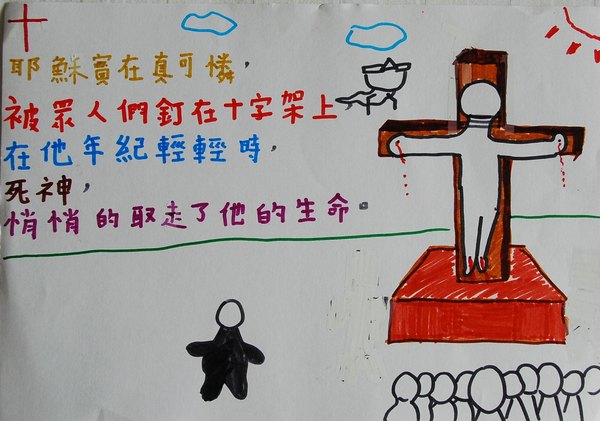 耶穌實在真可憐，
被眾人們釘在十字架上
在他年紀輕輕時，
死神，
悄悄的取走了他的生命。